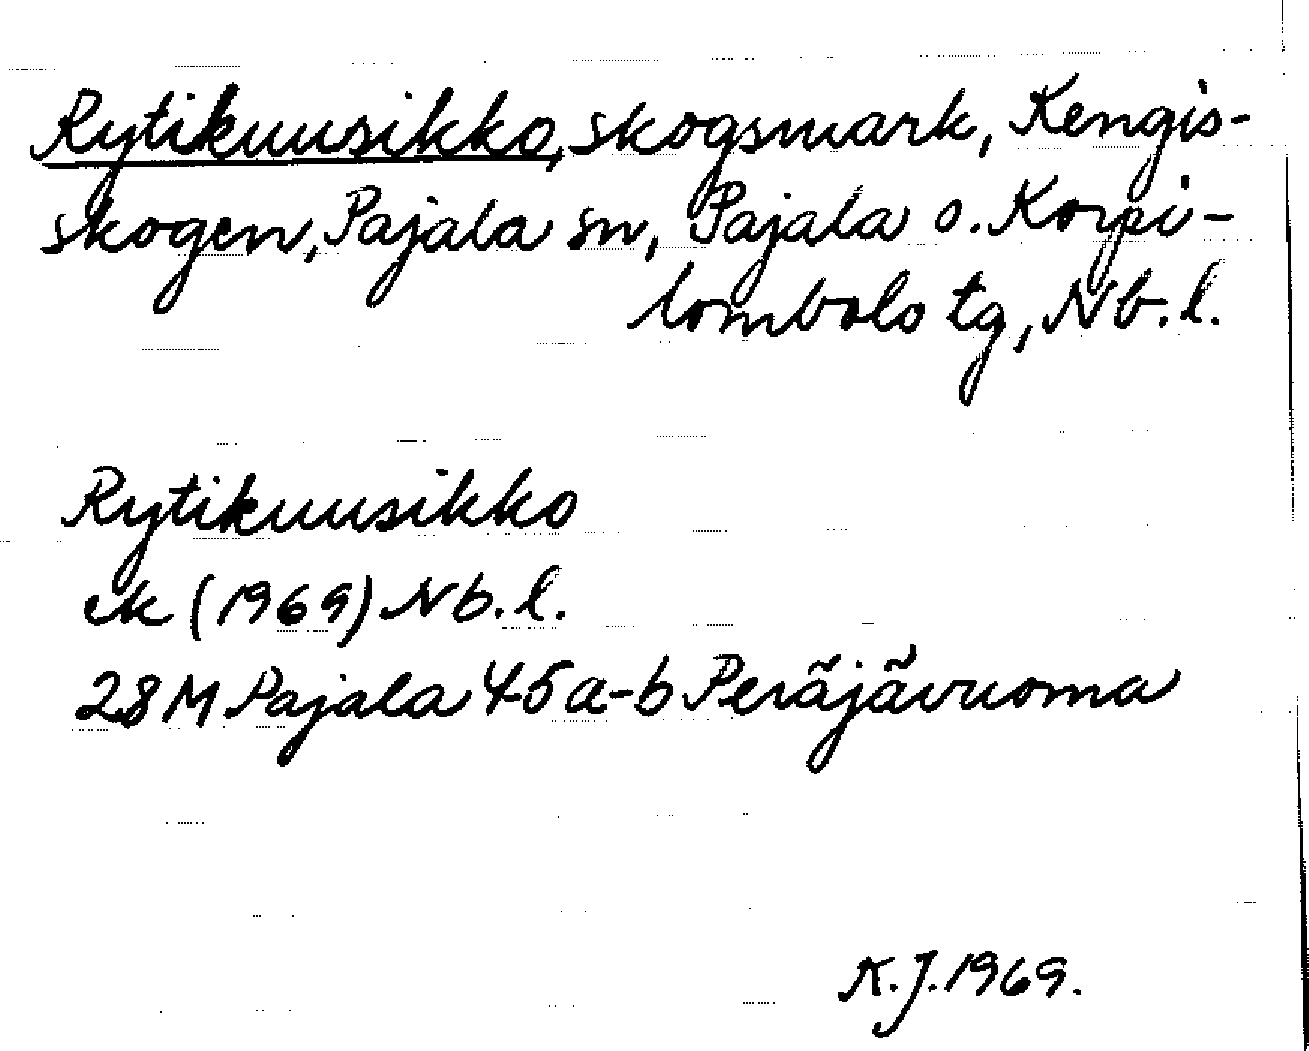 Rytikuusikko, skogsmark, Kengis-
skogen, Pajala sn, Pajala o. Korpi-
lombolo tg, Nb. l.
Rytikuusikko
ek (1969) Nb. l.
28 M Pajala 45 a-b Peräjävuoma
K. J. 1969.